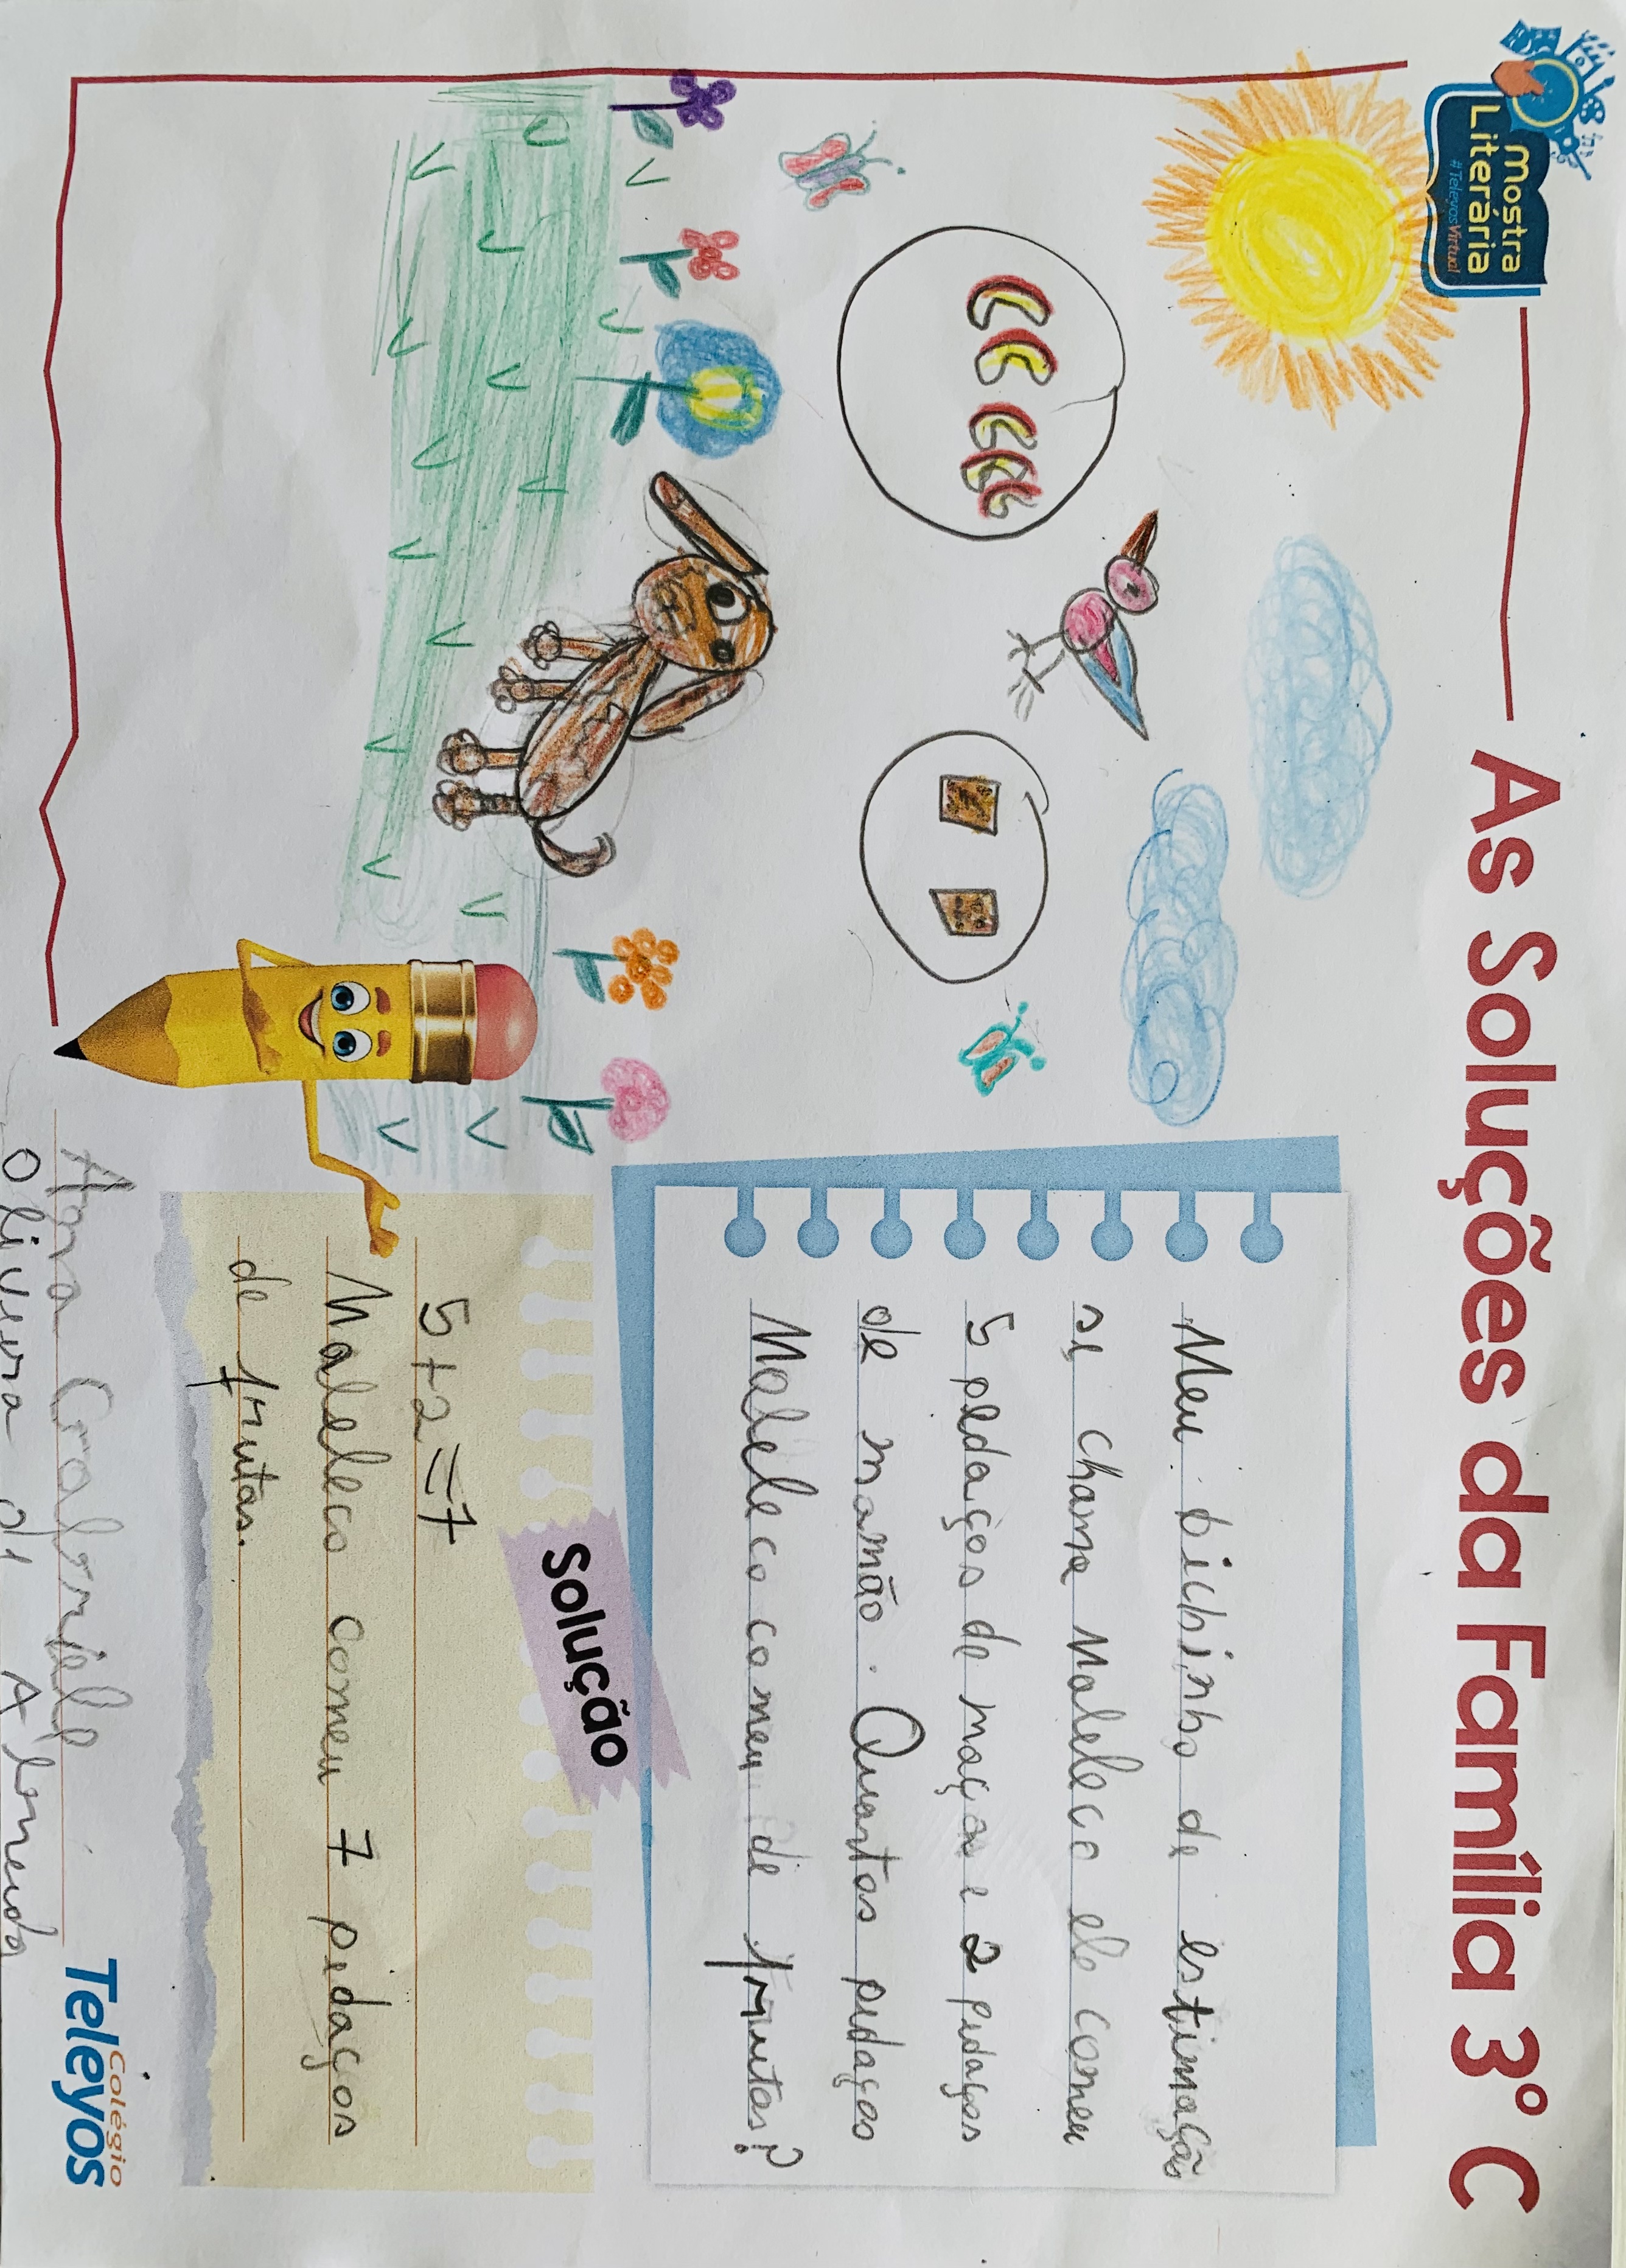 Mostra
Literária
#TeleyosVirtual
As Soluções da Família 3º C
Meu bichinho de estimação
se chama Maleleco ele comeu
5 pedaços de maças e 2 pedaços
de mamão. Quantos pedaços
Maleleco comeu de frutas?
Solução
5+2=7
Maleleco comeu 7 pedaços
de frutas.
Oliveira de
Colégio
Teleyos